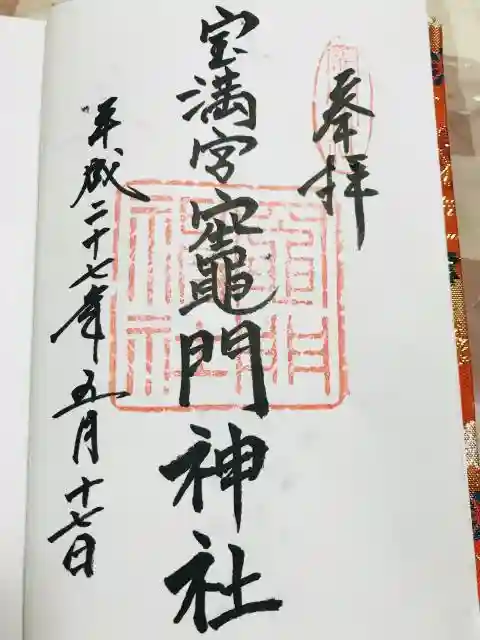 奉拝
宝満宮竈門神社
平成二十七年五月十七日